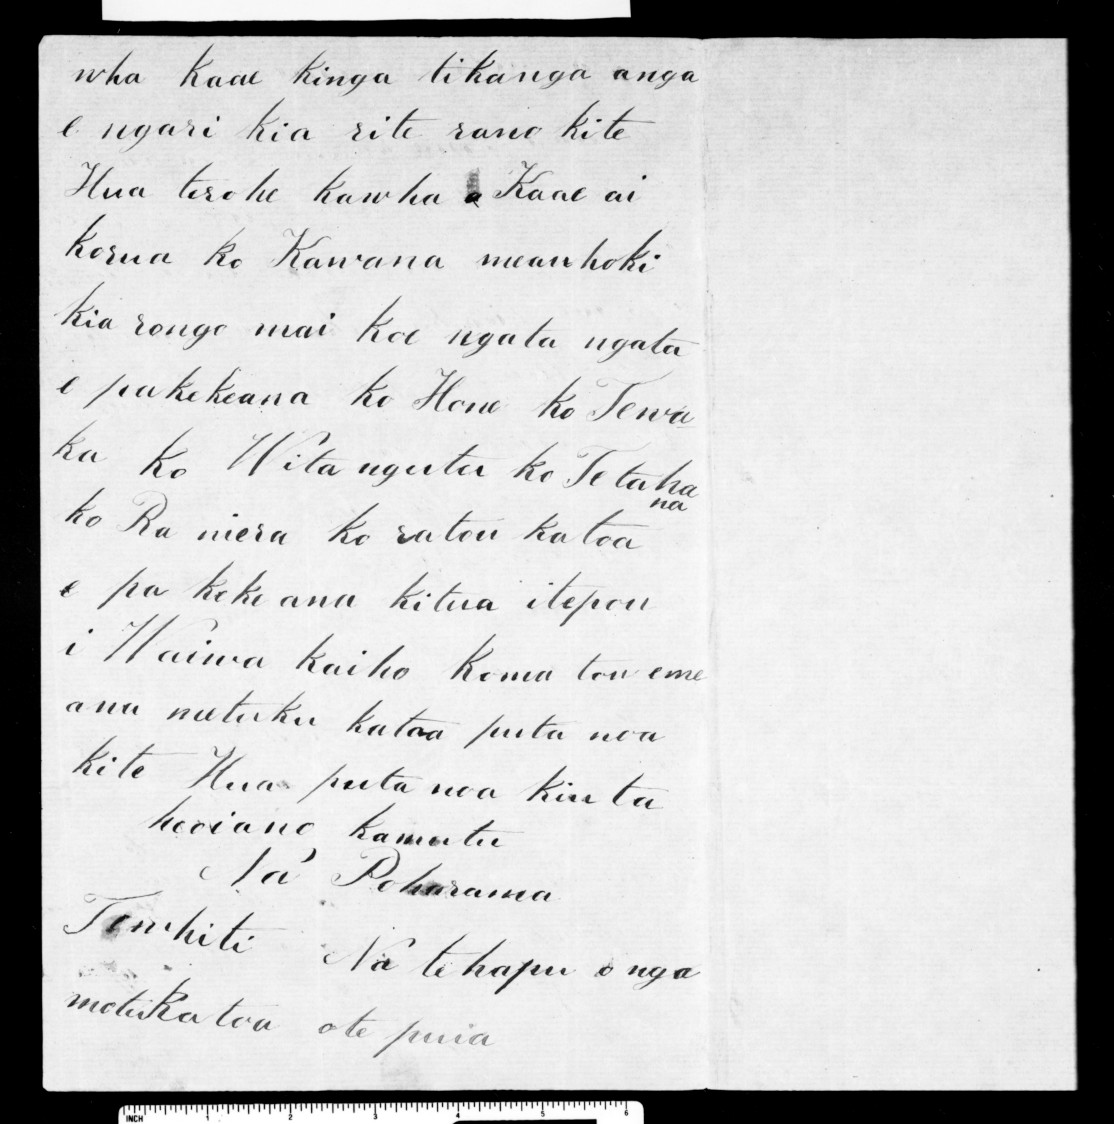 wha Kaae kinga tikanga anga
e ngari kia rite rano kite
Hua terohe kawha a Kaae ai
korua ko Kawana meauhoki
kia rongo mai koe ngata ngata
e pakekeana ko Hone ko Tewa
ka ko Wita ngutu ko Te taha
na
ko Ra niera ko ratou katoa
e pa keke ana kitua itepou
i Waiwa kaiho Koma tou eme
ana mutuku katoa puta noa
kite Hua puta noa kiuta
heoiano kamutu
Na Poharama
Tewhiti Na tehapu o nga
motu Katoa ote puia
INCH 1 2 3 4 5 6